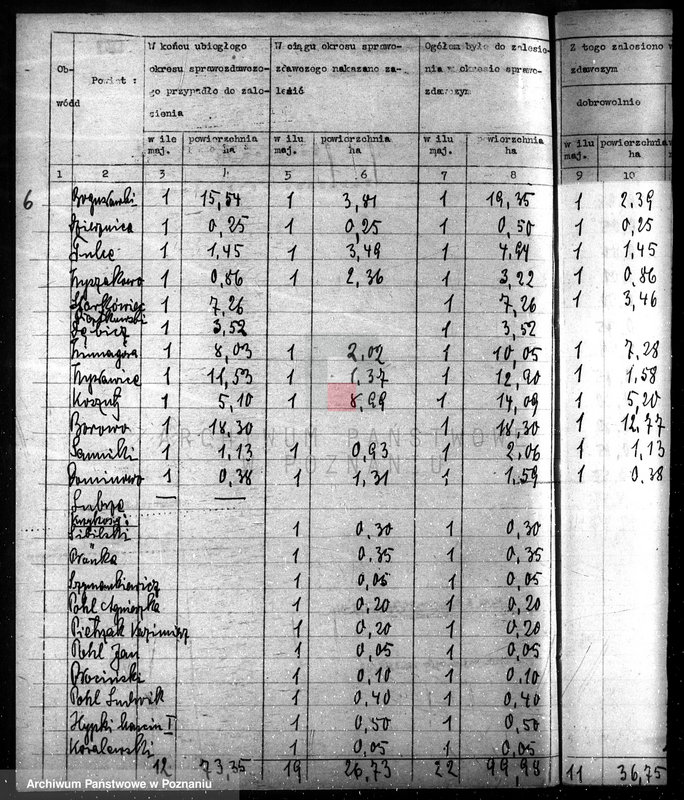 W końcu ubiogłego W ciągu okrosu sprawo- Ogółom było do zalosie- Z tego zalosiono w
Ob- Powiat: okrosu sprawozdawczo- zdawczego nakazano za- nia w okrosio sprawo- zdawczym
wódd go przypadło do zalo- losić zdawczym
sionia dobrowolnie
w ile powiorzchnia w ilu powiorzchnia w ilu powiorzchnia w ilu powiorzchnia
maj. ha maj. ha maj. ha maj. ha
1 2 3 4 5 6 7 8 9 10
6 1 15,54 1 3,81 1 19,35 1 2,39
1 0,25 1 0,25 1 0,50 1 0,25
1 1,45 1 3,49 1 4,94 1 1,45
1 0,86 1 2,36 1 3,22 1 0,86
1 7,26 1 7,26 1 3,46
1 3,52 1 3,52
1 8,03 1 2,02 1 10,05 1 7,28
1 11,53 1 1,37 1 12,90 1 1,58
1 5,10 1 8,99 1 14,09 1 5,20
Borowo 1 18,30 1 18,30 1 12,77
1 1,13 1 0,93 1 2,06 1 1,13
Dominowo 1 0,38 1 1,31 1 1,59 1 0,38
1 0,30 1 0,30
1 0,35 1 0,35
Szymankiewicz 1 0,05 1 0,05
Pohl Agnieszka 1 0,20 1 0,20
Pietrzak Kazimierz 1 0,20 1 0,20
Pohl Jan 1 0,05 1 0,05
Prociński 1 0,10 1 0,10
Pohl Ludwik 1 0,40 1 0,40
Hypki Marcin I 1 0,50 1 0,50
Kowalewski 1 0,05 1 0,05
12 73,35 19 26,73 22 99,98 11 36,75
ARCHIWUM PAŃSTWOWE
POZNANIU
Archiwum Państwowe w Poznaniu